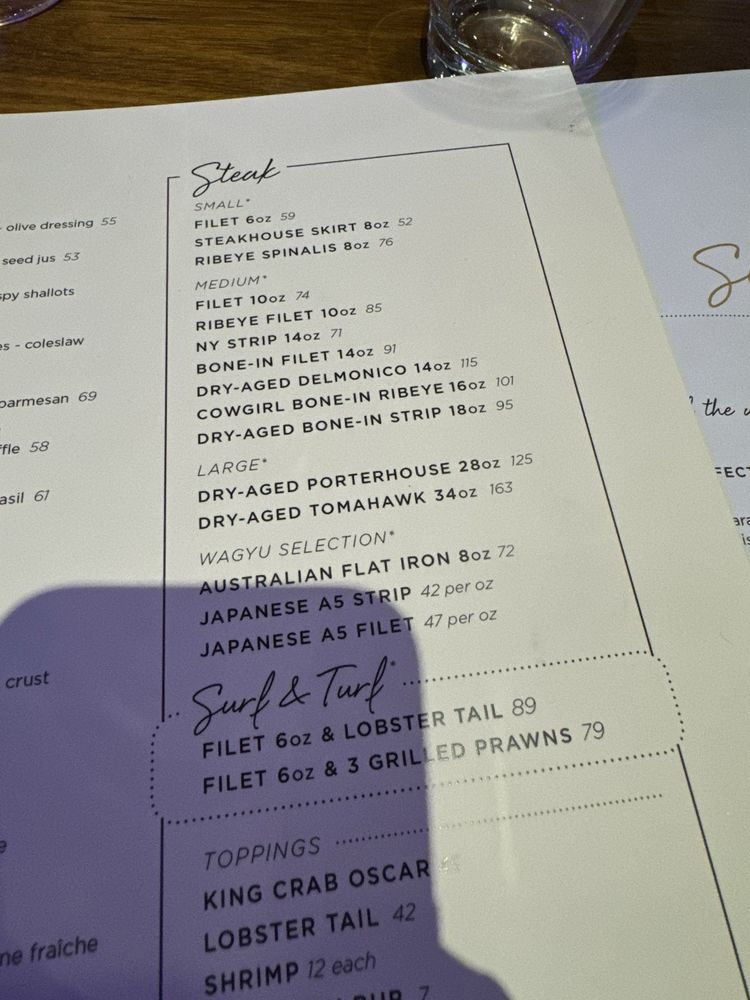 - olive dressing 55
seed jus 53
spy shallots
es - coleslaw
parmesan 69
ffle 58
asil 61
crust
ne fraîche
Steak
SMALL*
FILET 6oz 59
STEAKHOUSE SKIRT 8oz 52
RIBEYE SPINALIS 8oz 76
MEDIUM*
FILET 10oz 74
RIBEYE FILET 10oz 85
NY STRIP 14oz 71
BONE-IN FILET 14oz 91
DRY-AGED DELMONICO 14oz 115
COWGIRL BONE-IN RIBEYE 16oz 101
DRY-AGED BONE-IN STRIP 18oz 95
LARGE*
DRY-AGED PORTERHOUSE 28oz 125
DRY-AGED TOMAHAWK 34oz 163
WAGYU SELECTION*
AUSTRALIAN FLAT IRON 8oz 72
JAPANESE A5 STRIP 42 per oz
JAPANESE A5 FILET 47 per oz
Surf & Turf*
FILET 6oz & LOBSTER TAIL 89
FILET 6oz & 3 GRILLED PRAWNS 79
TOPPINGS
KING CRAB OSCAR
LOBSTER TAIL 42
SHRIMP 12 each
RUB 7
the